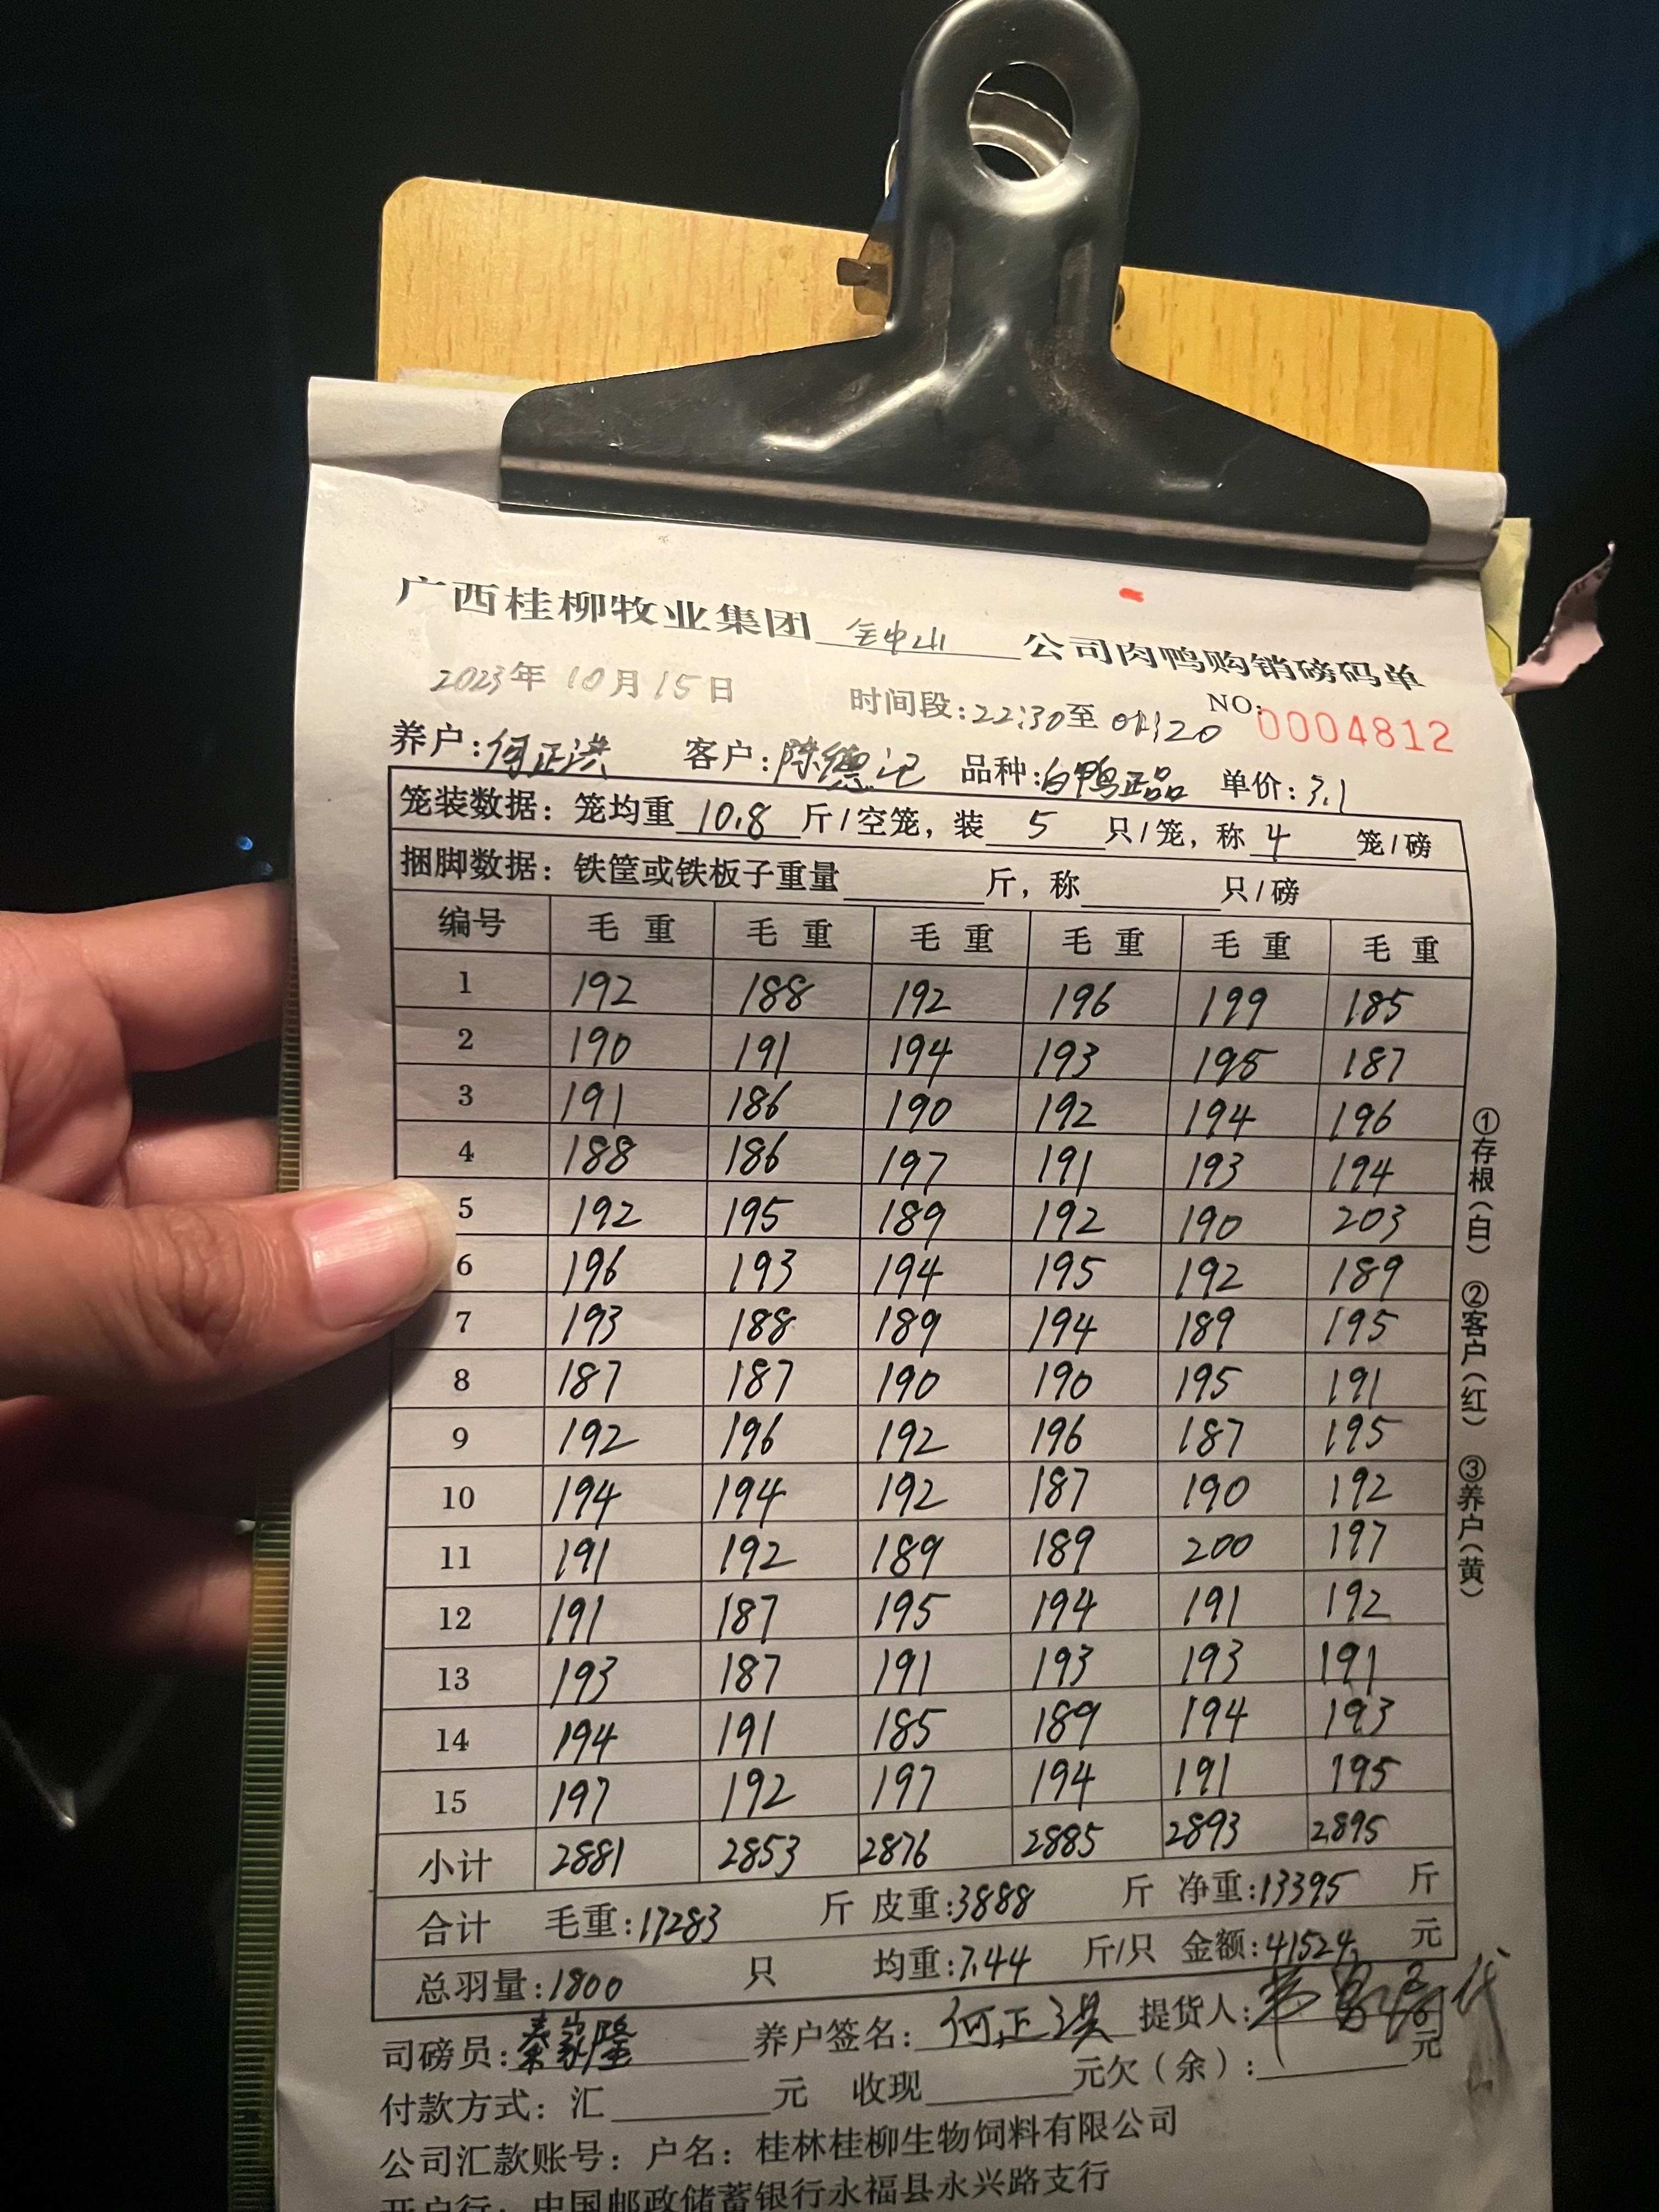 广西桂柳牧业集团 公司肉鸭购销磅码单
2023年10月15日 时间段:22:30至01:20 NO:0004812
养户:何正洪 客户:陈德记 品种:白鸭正品 单价:3.1
笼装数据:笼均重10.8斤/空笼,装5只/笼,称4笼/磅
捆脚数据:铁筐或铁板子重量 斤,称 只/磅
编号 毛重 毛重 毛重 毛重 毛重 毛重
1 192 188 192 196 199 185
2 190 191 194 193 195 187
3 191 186 190 192 194 196
4 188 186 197 191 193 194
5 192 195 189 192 190 203
6 196 193 194 195 192 189
7 193 188 189 194 189 195
8 187 187 190 190 195 191
9 192 196 192 196 187 195
10 194 194 192 187 190 192
11 191 192 189 189 200 197
12 191 187 195 194 191 192
13 193 187 191 193 193 191
14 194 191 185 189 194 193
15 197 192 197 194 191 195
小计 2881 2853 2876 2885 2893 2895
合计 毛重:17283斤 皮重:3888斤 净重:13395斤
总羽量:1800只 均重:7.44斤/只 金额:41524元
司磅员:秦家隆 养户签名:何正洪 提货人: 代
付款方式:汇 元 收现 元欠(余): 元
公司汇款账号:户名:桂林桂柳生物饲料有限公司
开户行:中国邮政储蓄银行永福县永兴路支行
①存根(白) ②客户(红) ③养户(黄)